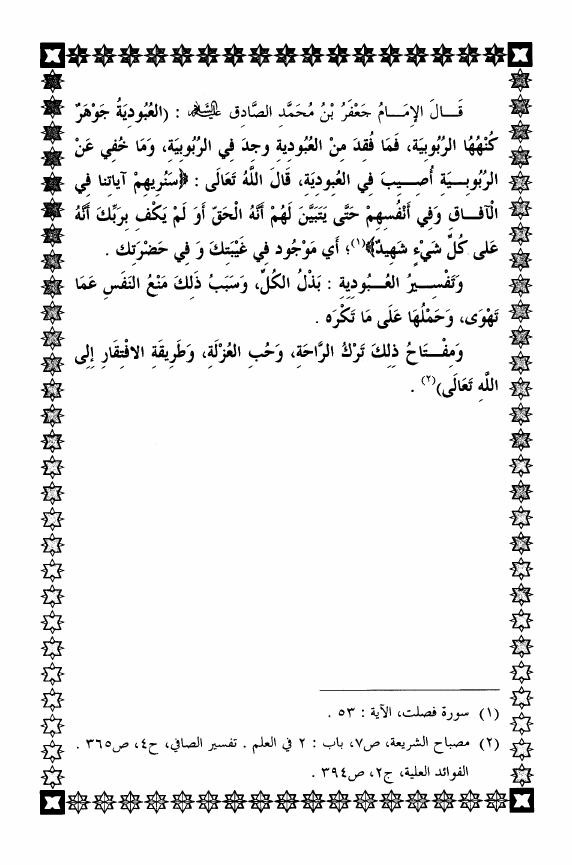 قَـــالَ الإِمَـــامُ جَعْفَرُ بْنُ مُحَمَّدِ الصَّادِقِ عليه السلام : (العُبُودِيَةُ جَوْهَرٌ
كُنْهُهَا الرُّبُوبِيَّة، فَمَا فُقِدَ مِنْ العُبُودِيةِ وجدَ فِي الرُّبُوبِيَةِ، وَمَا خُفِي عَنْ
الرُبُوبِـــيَةِ أُصِـــيبَ فِي العُبودِيَةِ، قَالَ اللَّهُ تَعَالَى : ﴿سَنُرِيهِمْ آيَاتِنا فِي
الْآفَـاقِ وَفِي أَنْفُسِهِمْ حَتَّى يَتَبَيَّنَ لَهُمْ أَنَّهُ الْحَقّ أَوَ لَمْ يَكْفِ بِرَبِّكَ أَنَّهُ
عَلى كُلِّ شَيْءٍ شَهِيدٌ﴾(١)؛ أَي مَوْجُود فِي غَيْبَتِكَ وَ فِي حَضْرَتِك .
وَتَفْسِـــيرُ العُـــبُودِيةِ : بَذْلُ الكُلِّ، وَسَبَبُ ذَلِكَ مَنْعُ النَفَسِ عَمَا
تَهْوَى، وَحَمْلُهَا عَلَى مَا تَكْرَه .
وَمِفْـــتَاحُ ذلِكَ تَرْكُ الرَّاحَةِ، وَحُبِ العُزْلَةِ، وَطَرِيقَةِ الافْتِقَارِ إلى
اللَّهِ تَعَالَى)(٢) .
(١) سورة فصلت، الآية : ٥٣ .
(٢) مصباح الشريعة، ص٧، باب : ٢ في العلم . تفسير الصافي، ح٤، ص٣٦٥ .
الفوائد العلية، ج٢، ص٣٩٤ .